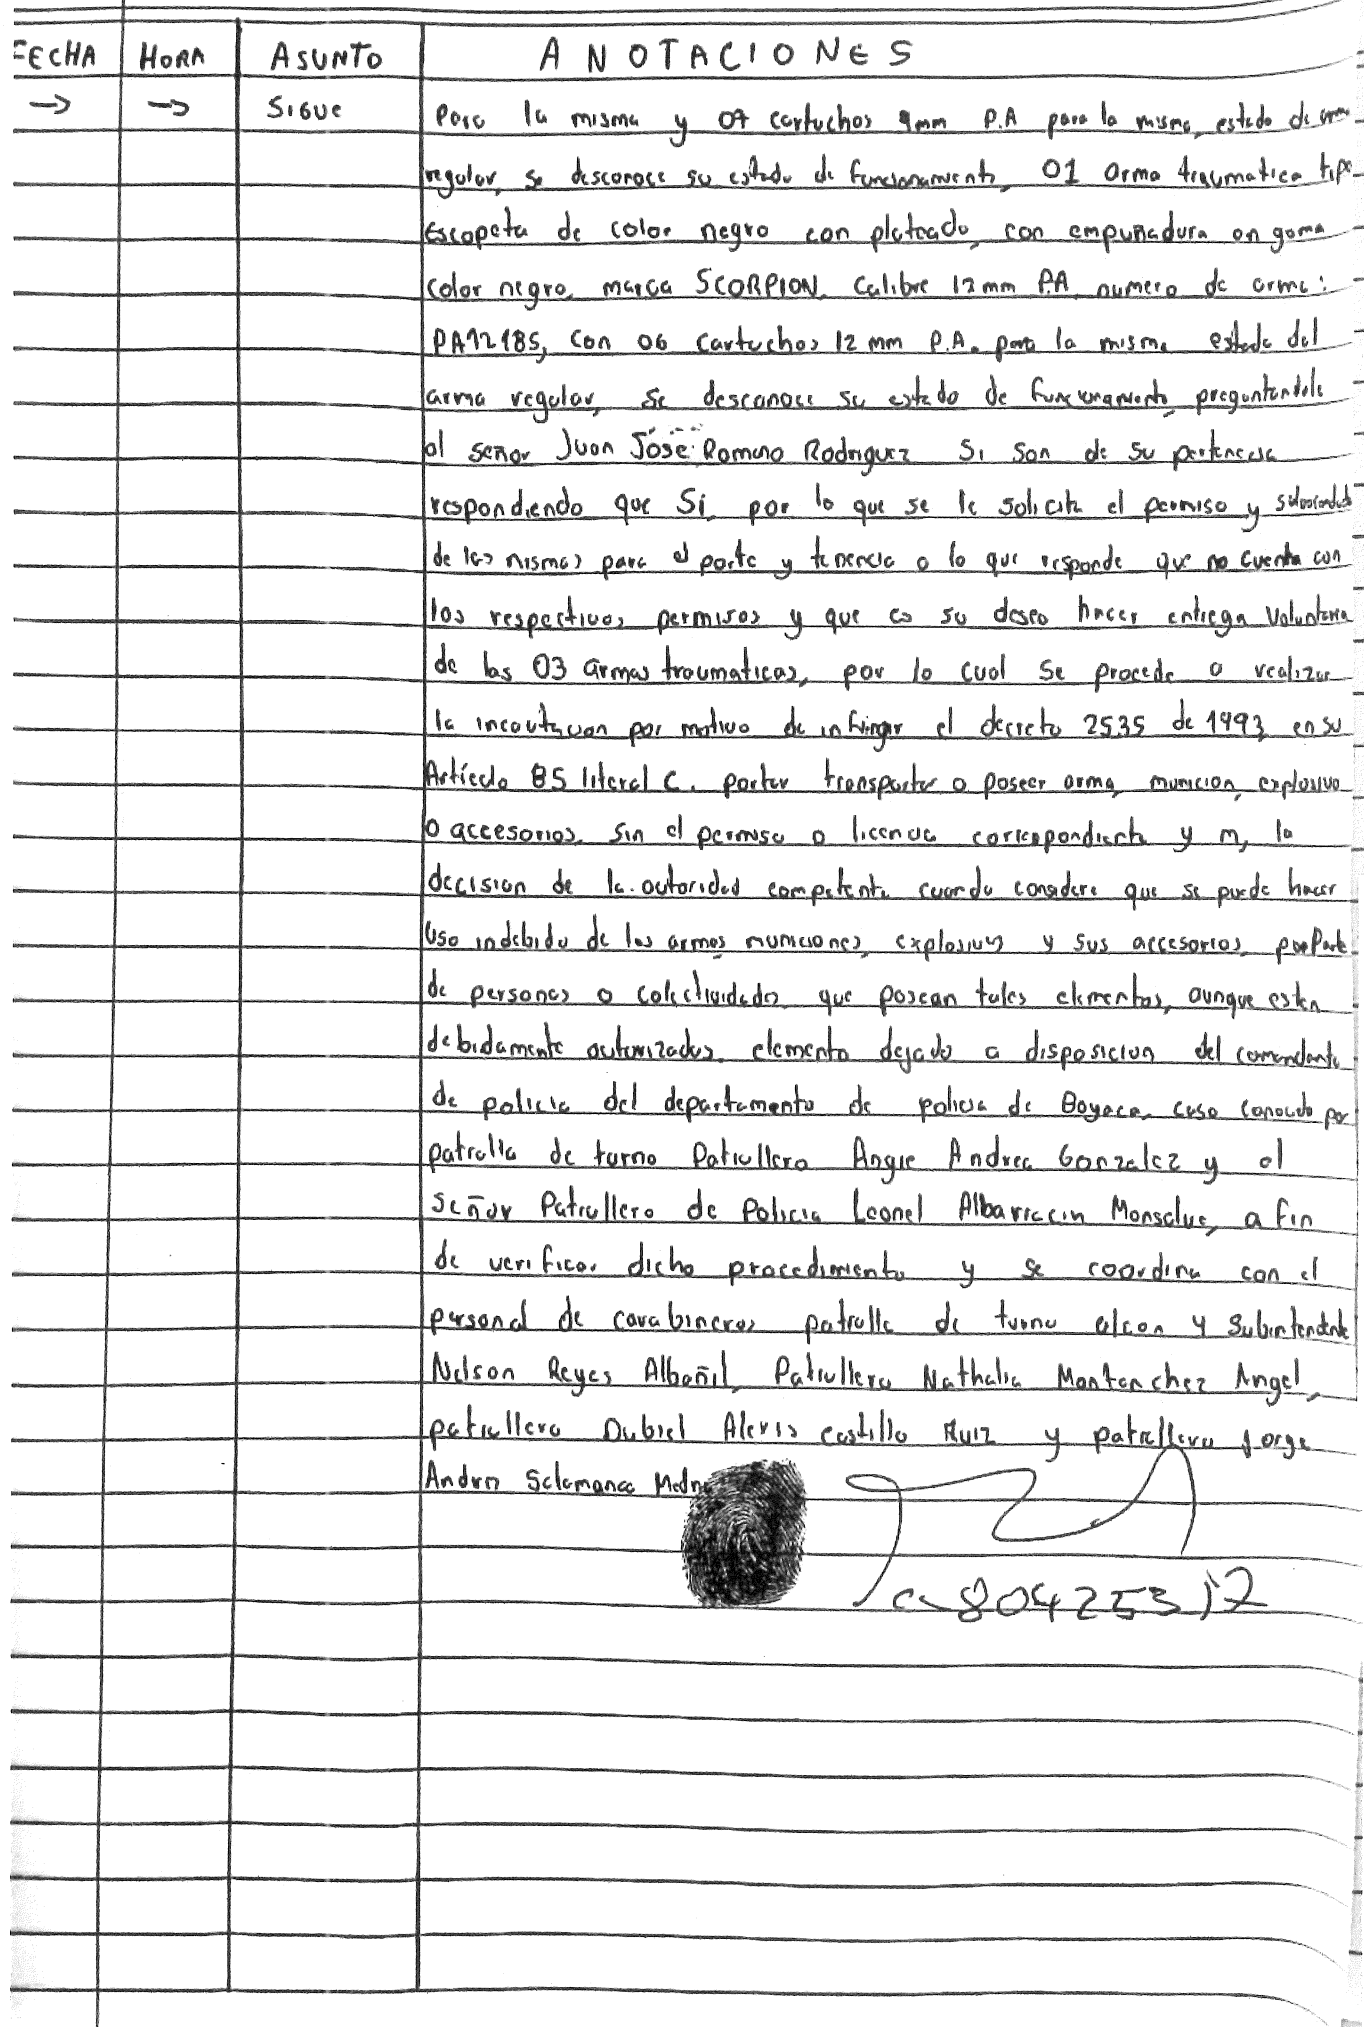 FECHA HORA ASUNTO ANOTACIONES
→ → SIGUE Para la misma y 07 cartuchos 9mm P.A para la misma, estado de arma
regular, se desconoce su estado de funcionamiento, 01 arma traumatica tipo
Escopeta de color negro con plateado, con empuñadura en goma
color negro, marca SCORPION, Calibre 12 mm P.A, numero de arma:
PA12185, con 06 cartuchos 12 mm P.A. para la misma estado del
arma regular, se desconoce su estado de funcionamiento, preguntandole
al señor Juan José Romero Rodriguez si son de su pertenencia
respondiendo que Si, por lo que se le solicita el permiso y
de las mismas para el porte y tenencia a lo que responde que no cuenta con
los respectivos permisos y que es su deseo hacer entrega voluntaria
de las 03 armas traumaticas, por lo cual se procede a realizar
la incautacion por motivo de infringir el decreto 2535 de 1993, en su
Articulo 85 literal C. portar transportar o poseer arma, municion, explosivo
o accesorios, sin el permiso o licencia correspondiente y m, la
decision de la autoridad competente cuando considere que se puede hacer
Uso indebido de las armas municiones, explosivos y sus accesorios, por Parte
de personas o colectividades, que posean tales elementos, aunque esten
debidamente autorizados, elemento dejado a disposicion del comandante
de policia del departamento de policia de Boyaca, caso conocido por
patrulla de turno Patrullera Angie Andrea Gonzalez y el
señor Patrullero de Policia Leonel Albarracin Monsalve, a fin
de verificar dicho procedimiento y se coordina con el
personal de carabineros patrulla de turno alcon 4 Subintendente
Nelson Reyes Albañil, Patrullera Nathalia Montanchez Angel,
patrullero Dubiel Alexis Castillo Ruiz y patrullero Jorge
Andres Salamanca
80425317